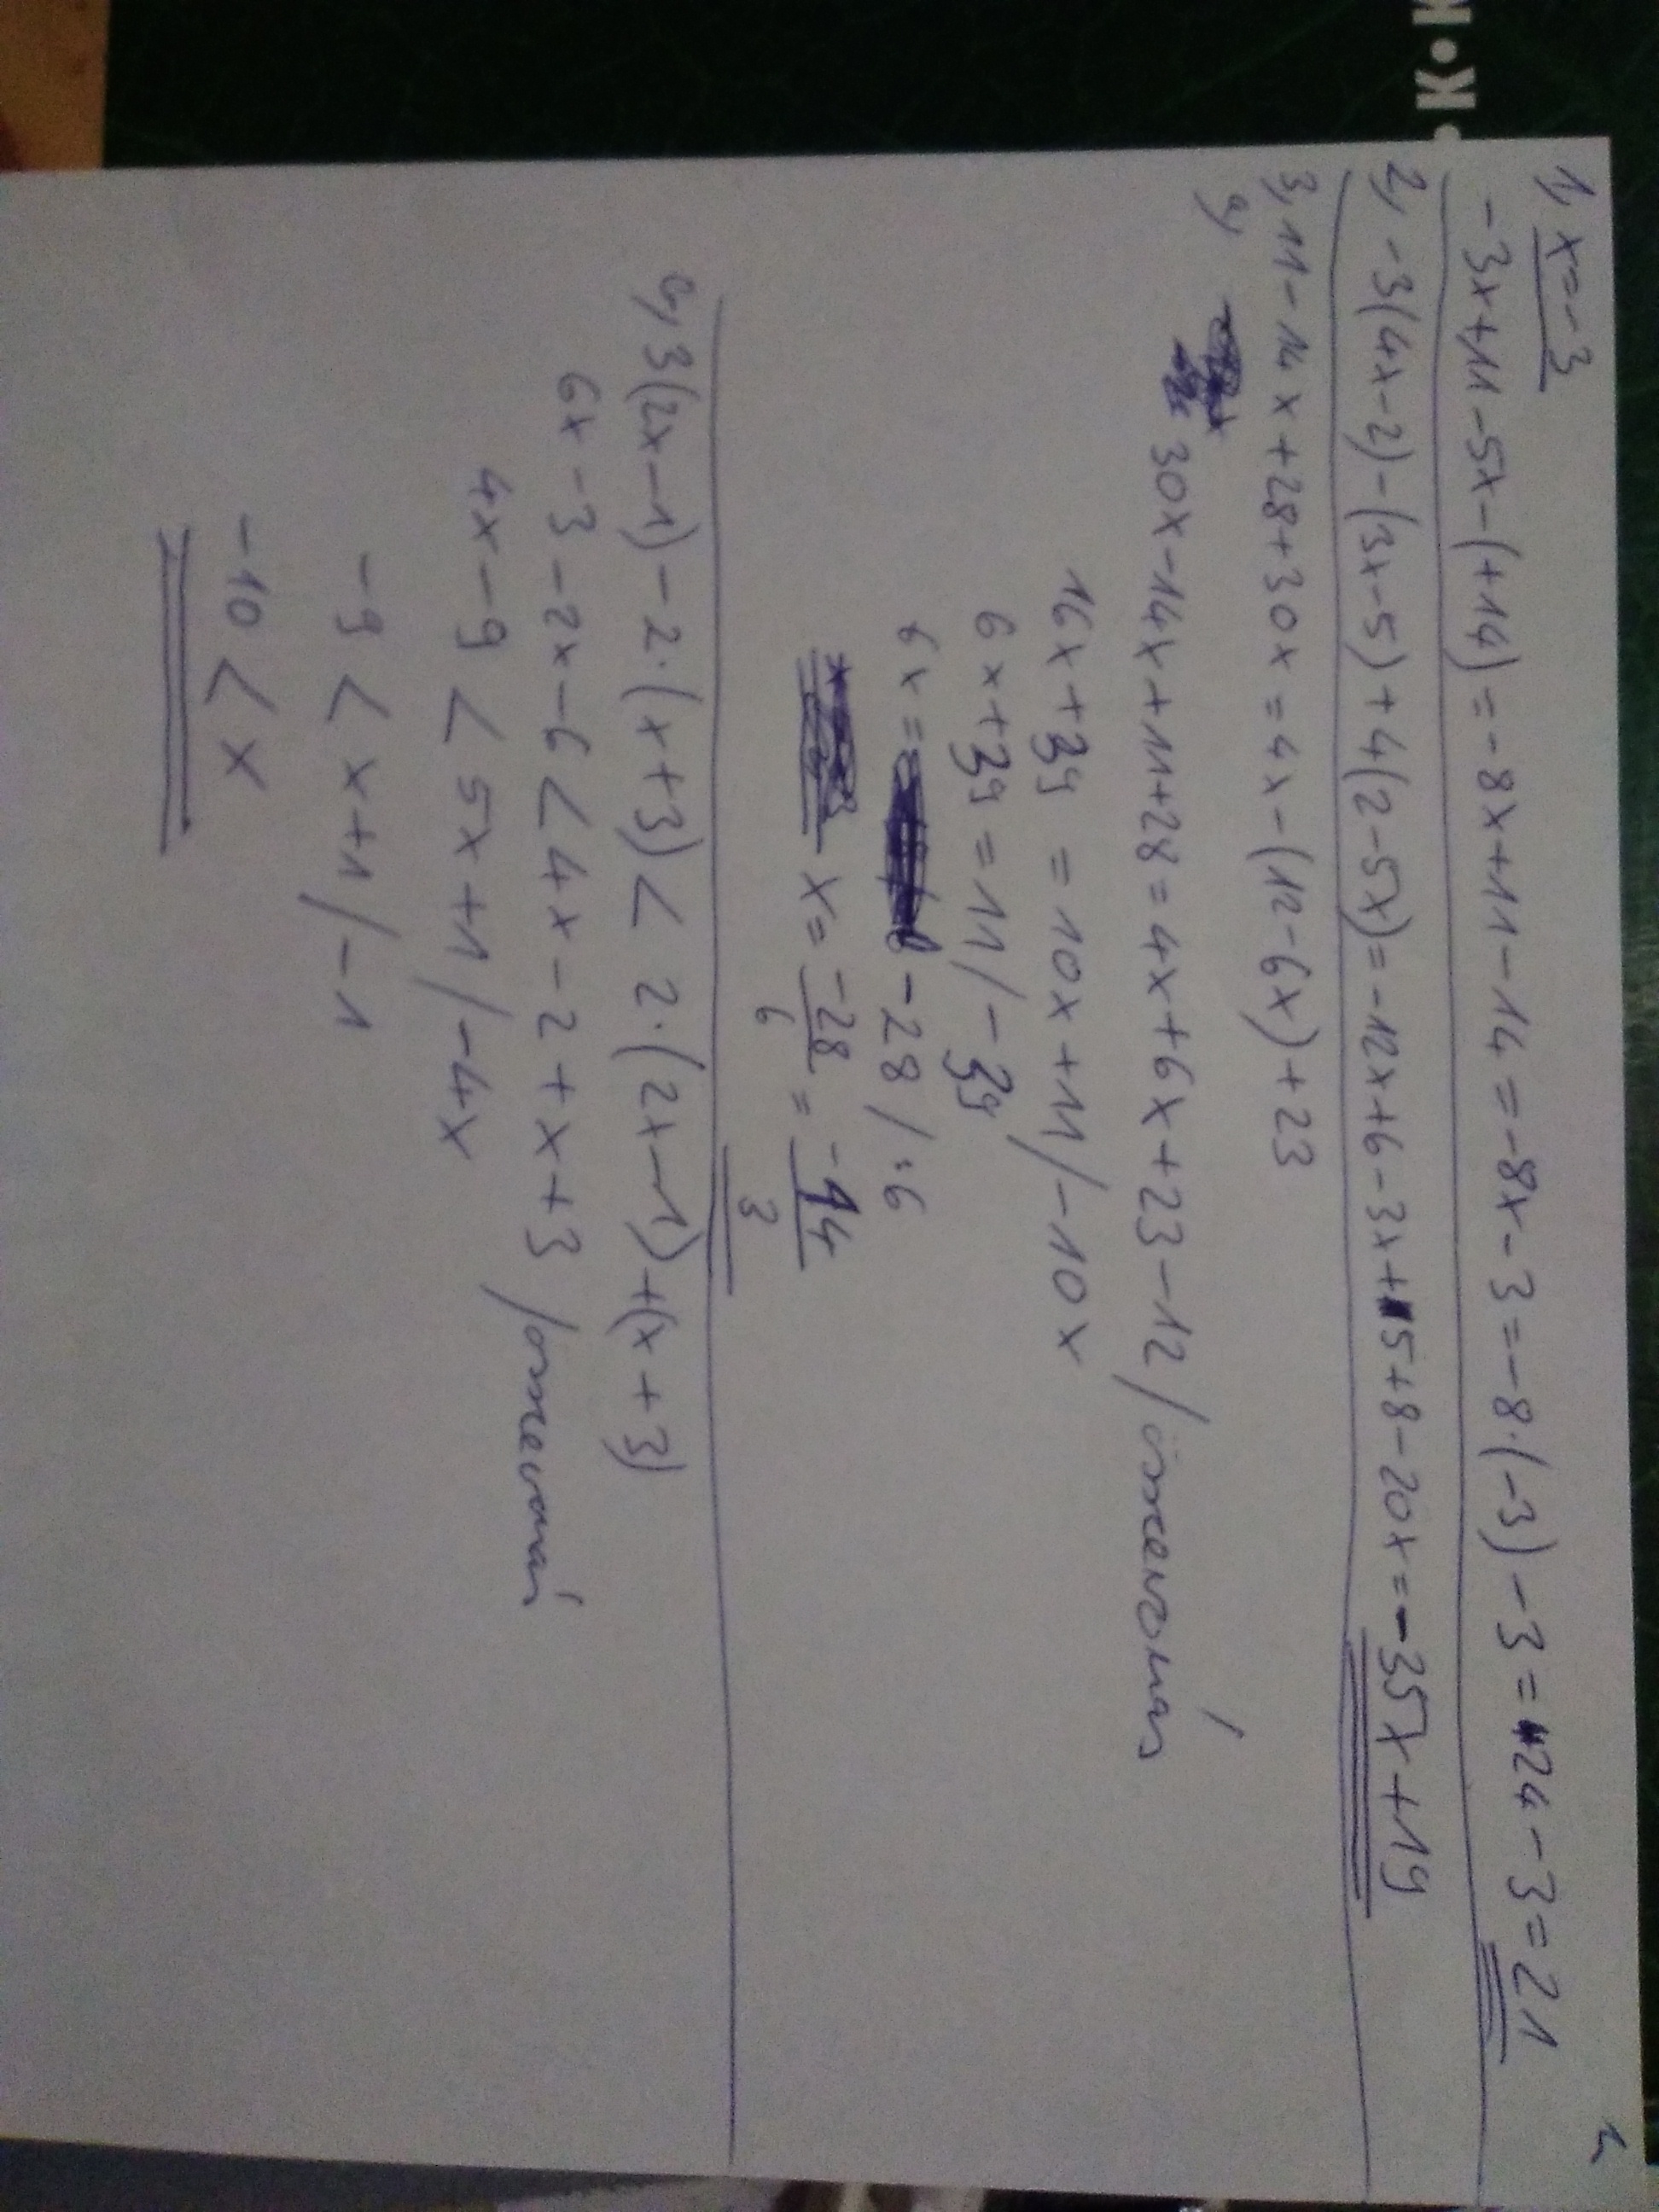 1, x=-3
-3x+11-5x-(+14)=-8x+11-14=-8x-3=-8·(-3)-3=24-3=21
2, -3(4x-2)-(3x-5)+4(2-5x)=-12x+6-3x+5+8-20x=-35x+19
3, 11-14x+28+30x=4x-(12-6x)+23
a,
30x-14x+11+28=4x+6x+23-12/összevonás
16x+39=10x+11/-10x
6x+39=11/-39
6x=-28/:6
x=-28/6=-14/3
3(2x-1)-2·(x+3)<2·(2x-1)+(x+3)
6x-3-2x-6<4x-2+x+3/összevonás
4x-9<5x+1/-4x
-9<x+1/-1
-10<x
K·K